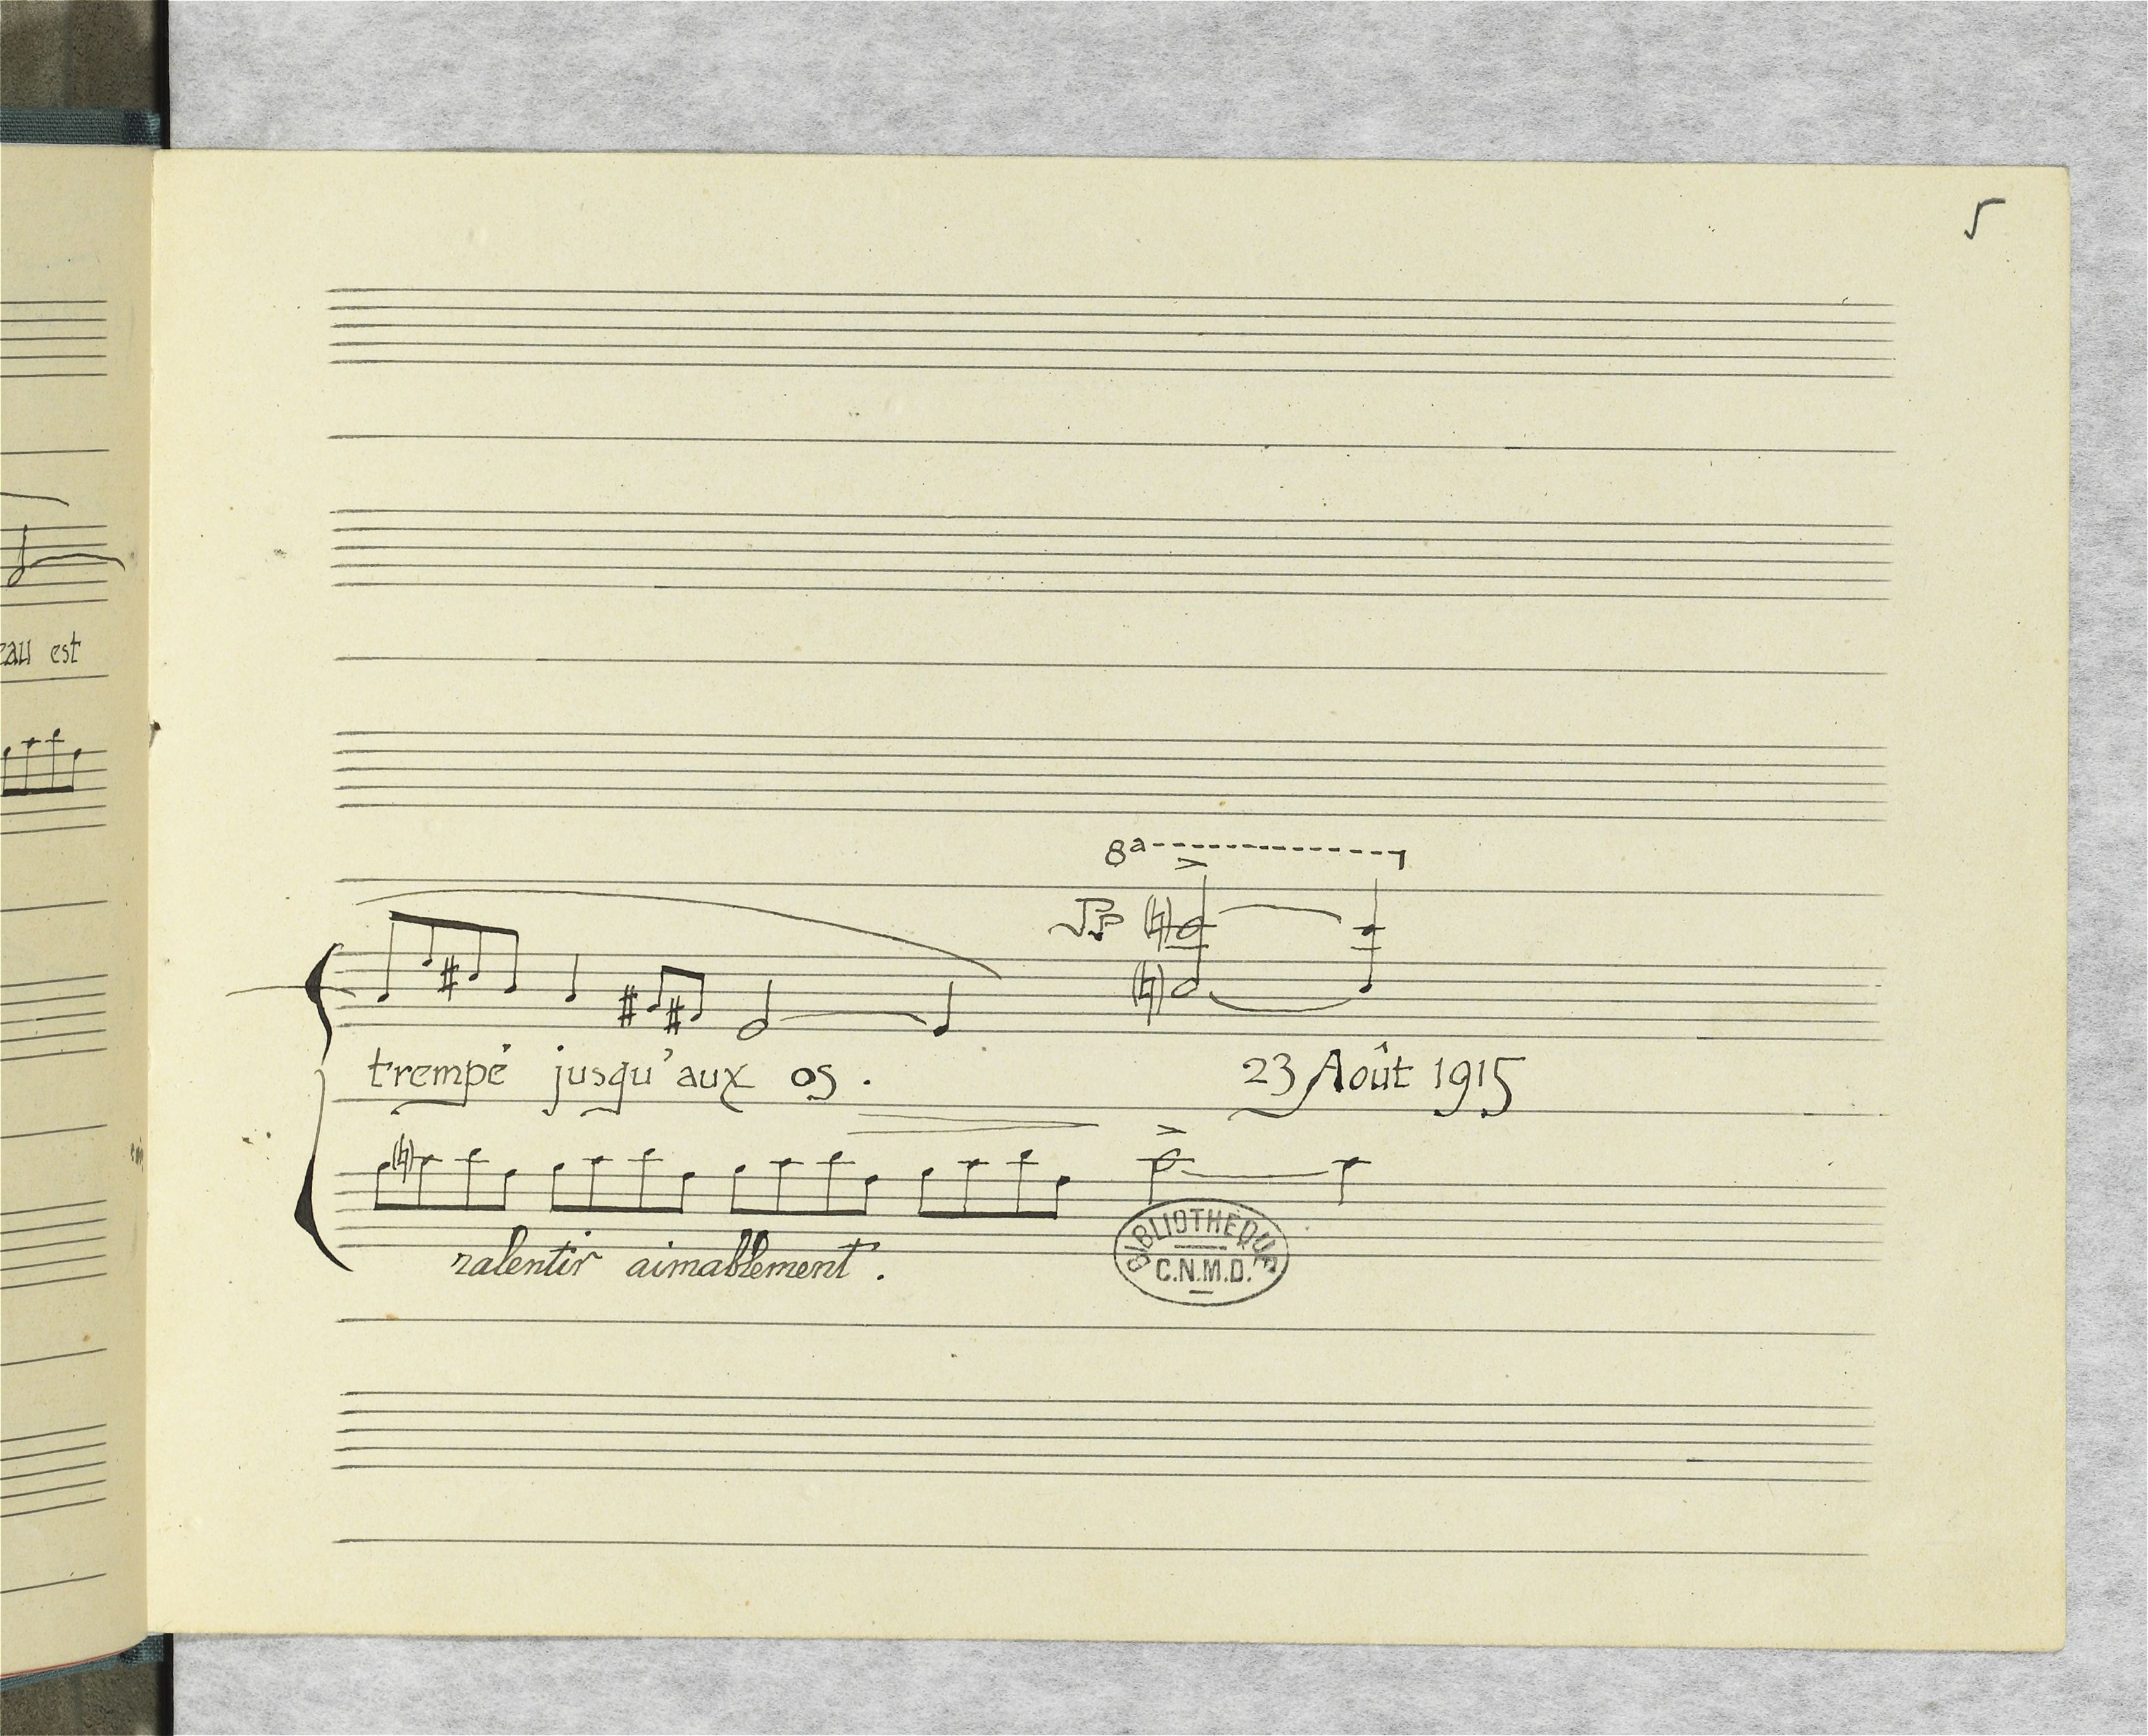 5
eau est
8a
pp
trempé jusqu'aux os.
23 Août 1915
ralentir aimablement.
BIBLIOTHEQUE
C.N.M.D.